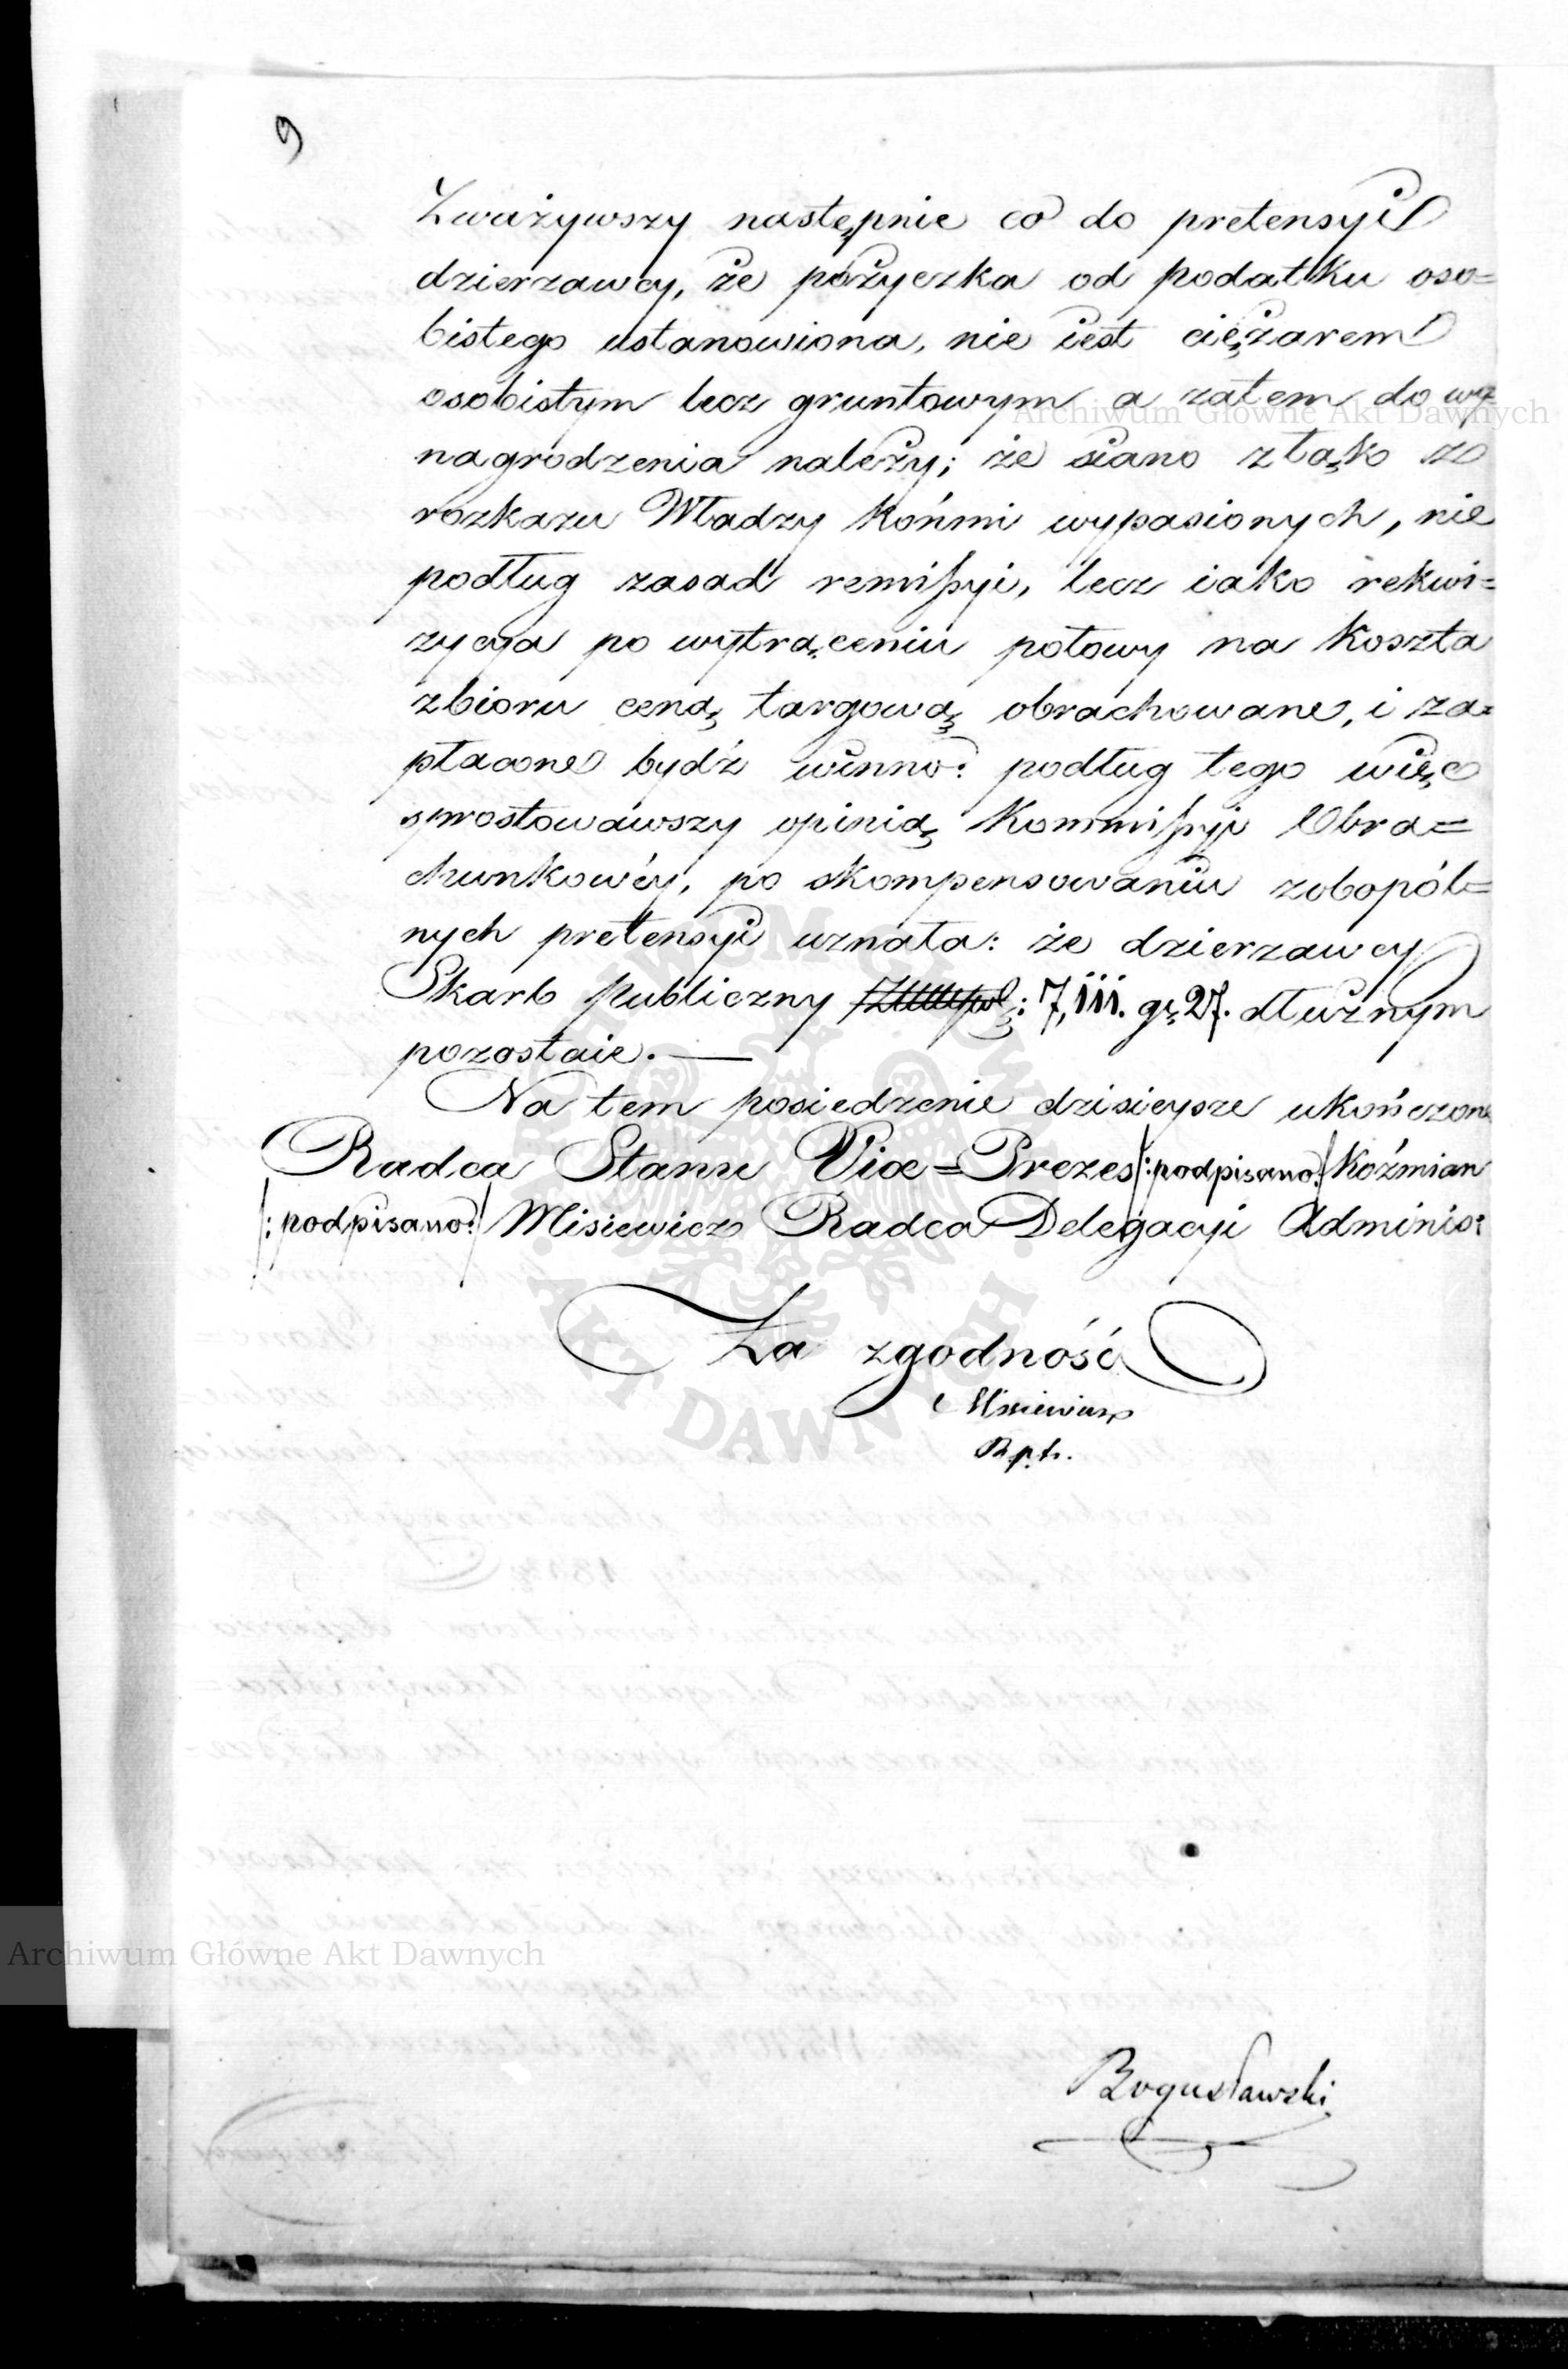 9
Zważywszy następnie co do pretensyi
dzierzawcy, że pożyczka od podatku oso=
bistego ustanowiona, nie iest ciężarem
osobistym lecz gruntowym a zatem do wy
nagrodzenia należy; że siano z łąk z
rozkazu Władzy końmi wypasionych, nie
podług zasad remissyi, lecz iako rekwi=
zycya po wytrąceniu połowy na koszta
zbioru ceną targową obrachowane, i za=
płacone bydź winno: podług tego więc
sprostowawszy opinią Kommissyi Obra=
chunkowéy, po skompensowaniu zobopól=
nych pretensyi uznała: że dzierzawcy
Skarb publiczny : 7,111. gr 27. dłużnym
pozostaie. —
Na tem posiedzenie dzisieysze ukończone
Radca Stanu Vice=Prezes /:podpisano:/ Koźmian
/:podpisano:/ Misiewicz Radca Delegacyi Adminis:
Za zgodność
Misiewicz
Bogusławski
Archiwum Główne Akt Dawnych
Archiwum Główne Akt Dawnych
ARCHIWUM GŁÓWNE · AKT DAWNYCH ·